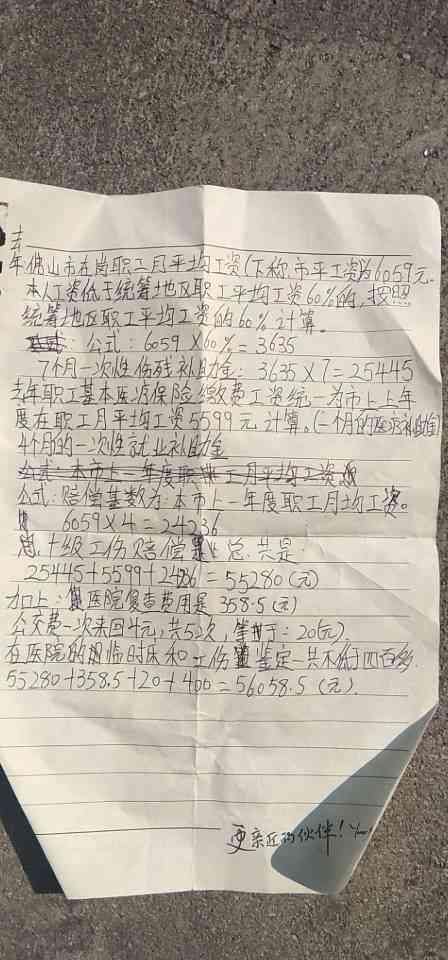 去
年佛山市在岗职工月平均工资(下称.市平工资)为6059元.
本人工资低于统筹地区职工平均工资60%的,按照
统筹地区职工平均工资的60%计算。
公式:6059×60%=3635
7个月一次性伤残补助金:3635×7=25445
去年职工基本医疗保险缴费工资统一为市上上年
度在职工月平均工资5599元计算。(一个月的医疗补助金)
4个月的一次性就业补助金
公式:本市上一年度职工月平均工资
公式:赔偿基数为:本市上一年度职工月均工资。
6059×4=24236
总.十级工伤赔偿总.共是:
25445+5599+24236=55280(元)
加上:医院复查费用是358.5(元)
公交费一次来回4元,共5次,等于:20(元).
在医院的临时床和工伤鉴定一共不低于四百多.
55280+358.5+20+400=56058.5(元).
更亲近的伙伴!